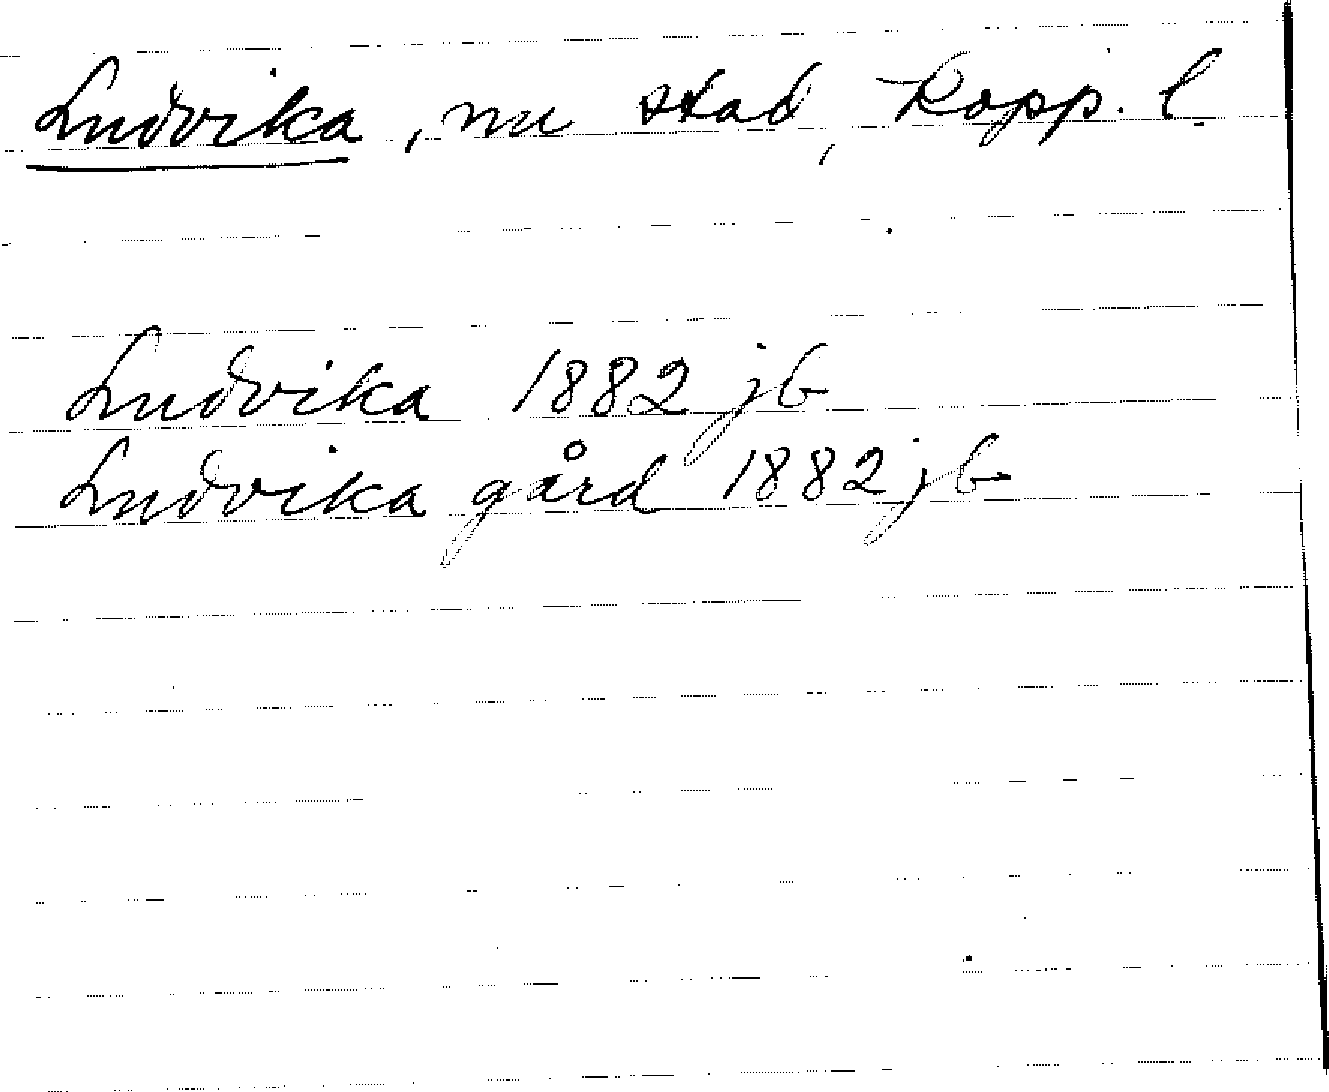 Ludvika, nu stad, Kopp. l.
Ludvika 1882 jb
Ludvika gård 1882 jb